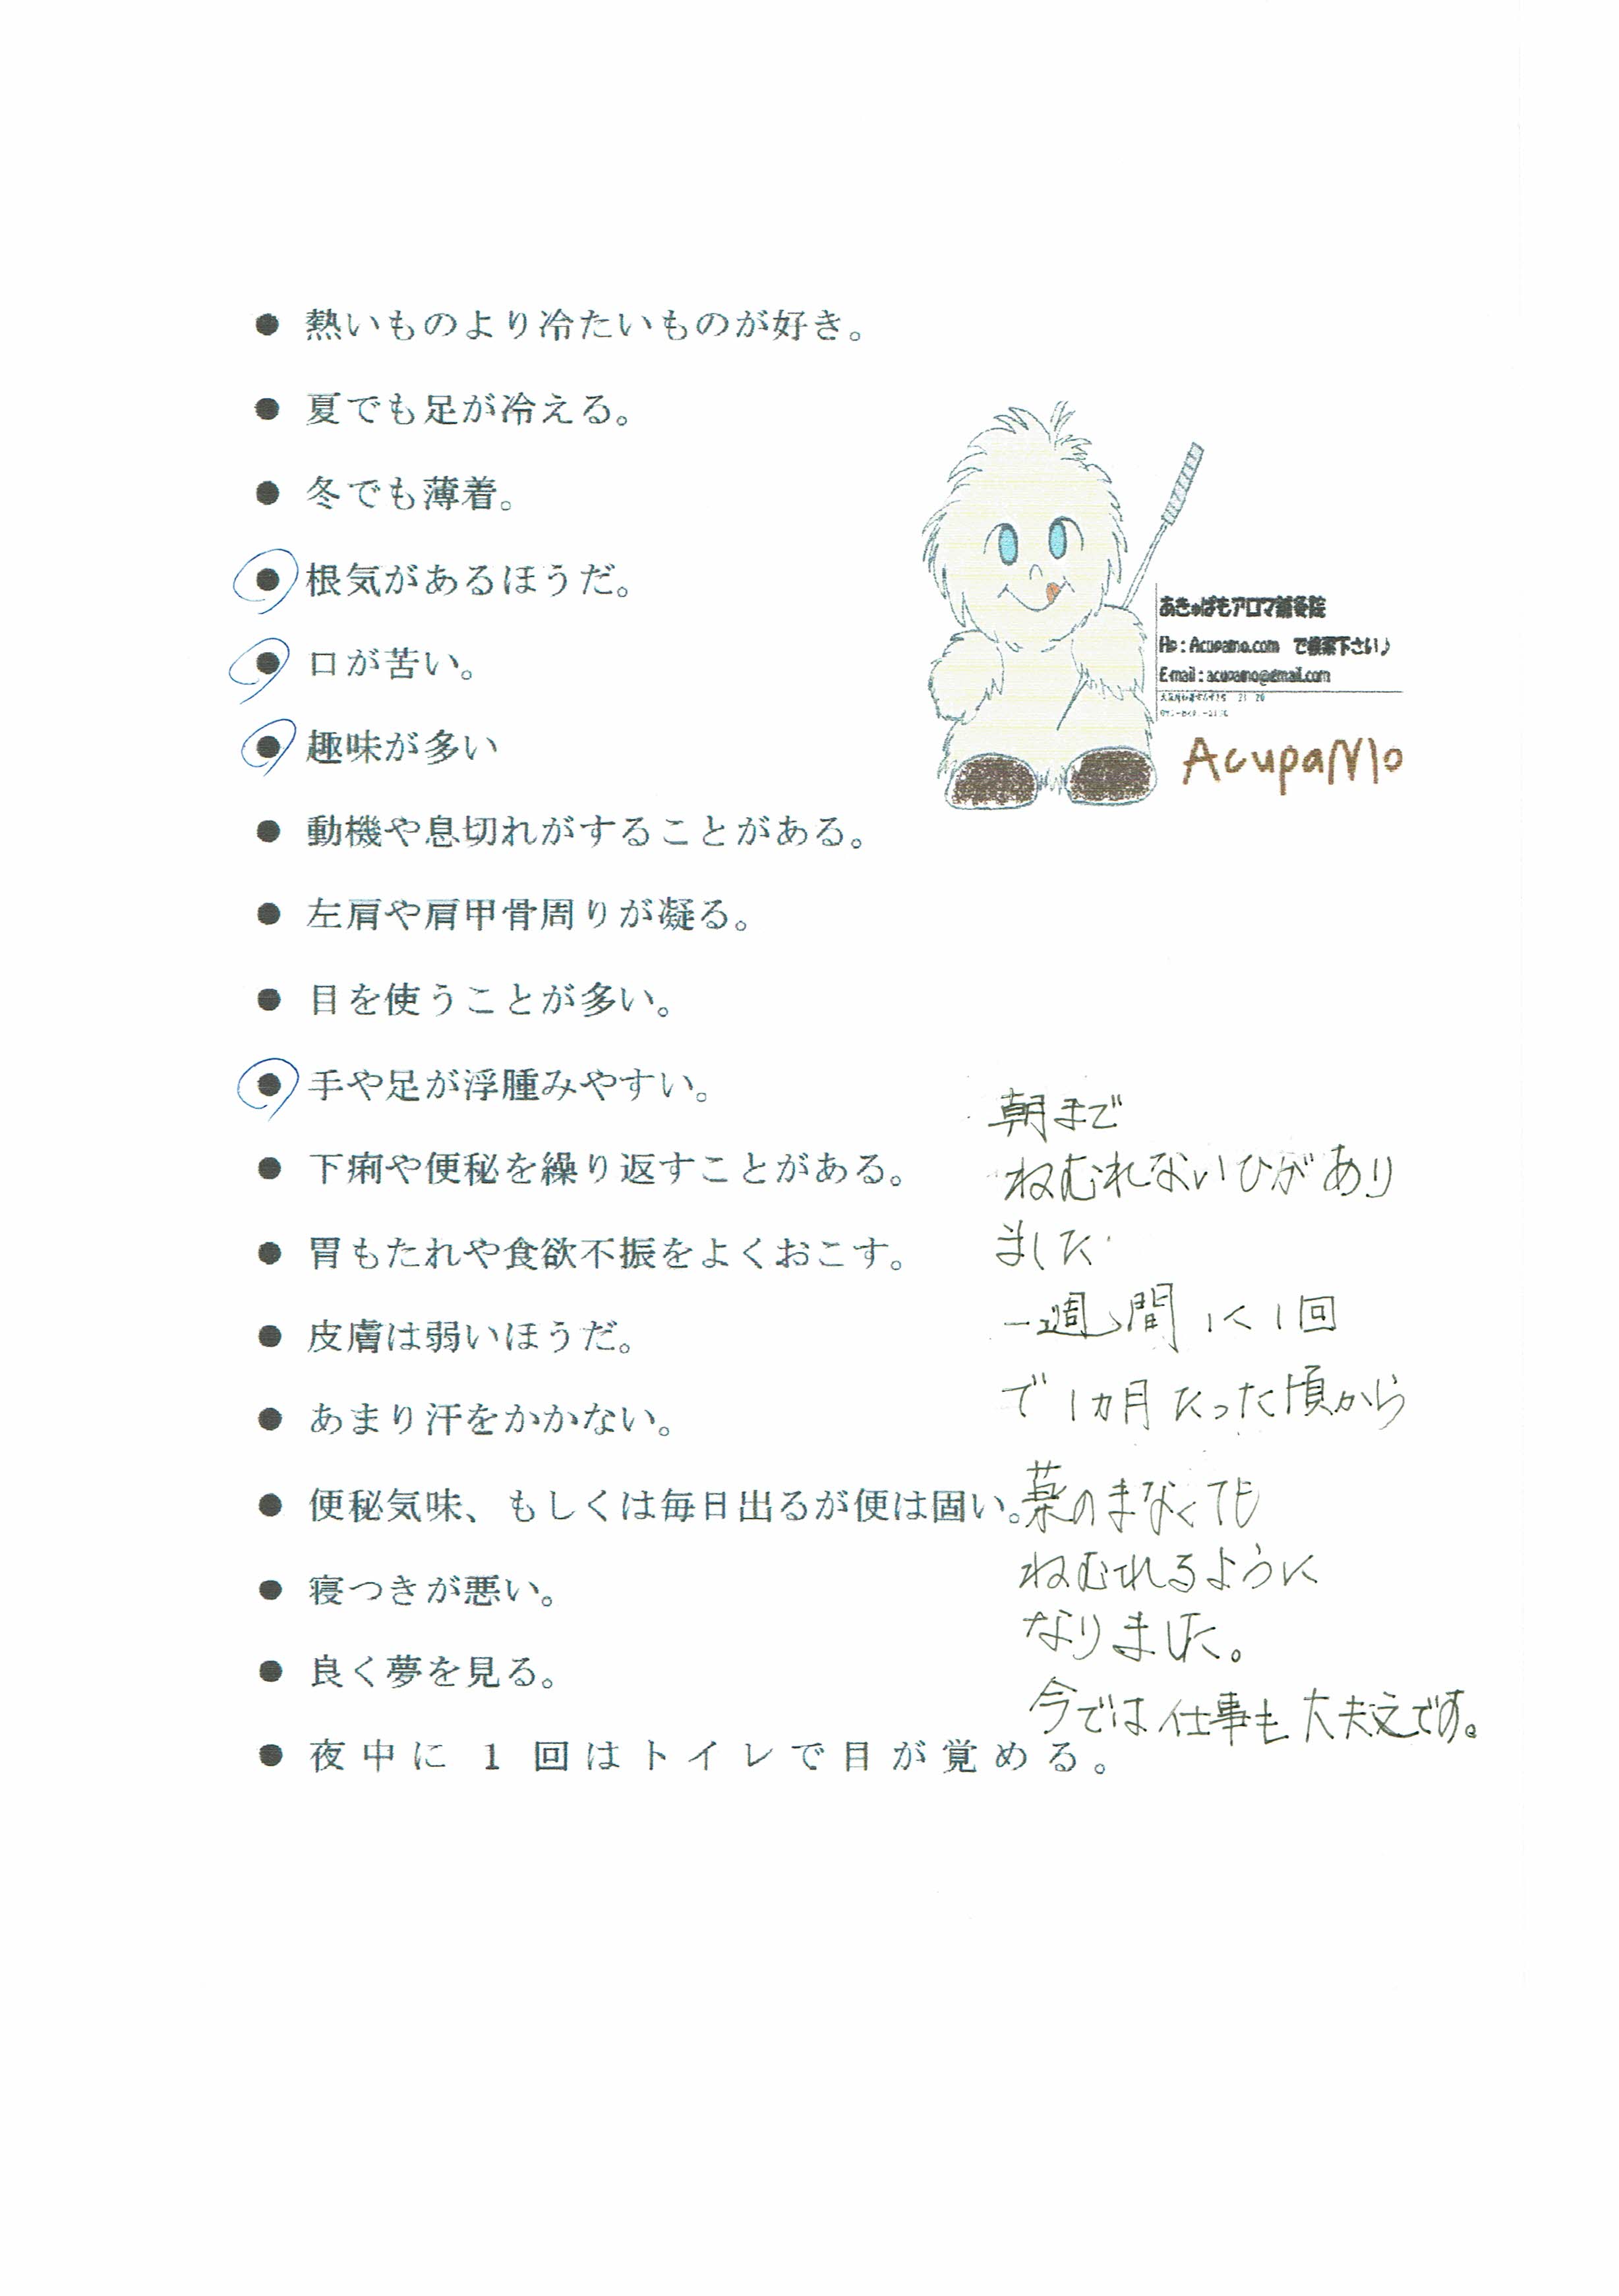 ● 熱いものより冷たいものが好き。
● 夏でも足が冷える。
● 冬でも薄着。
● 根気があるほうだ。
● 口が苦い。
● 趣味が多い
● 動機や息切れがすることがある。
● 左肩や肩甲骨周りが凝る。
● 目を使うことが多い。
● 手や足が浮腫みやすい。
● 下痢や便秘を繰り返すことがある。
● 胃もたれや食欲不振をよくおこす。
● 皮膚は弱いほうだ。
● あまり汗をかかない。
● 便秘気味、もしくは毎日出るが便は固い。
● 寝つきが悪い。
● 良く夢を見る。
● 夜中に 1 回はトイレで目が覚める。
あきゅぱもアロマ鍼灸院
Hp : Acupamo.com で検索下さい♪
E-mail : acupamo@gmail.com
AcupaMo
朝まで
ねむれないひがあり
ました
一週間に1回
で1カ月たった頃から
薬のまなくても
ねむれるように
なりました。
今では仕事も大丈夫です。